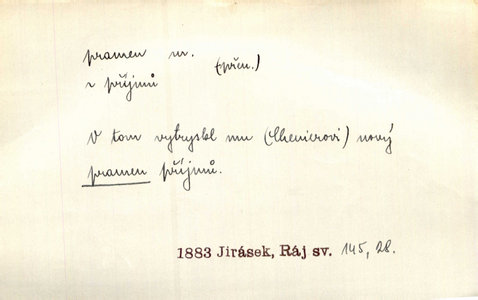 pramen m.
(přen.)
~ příjmů
V tom vytryskl mu (Chenierovi) nový
pramen příjmů.
1883 Jirásek, Ráj sv. 145, 28.